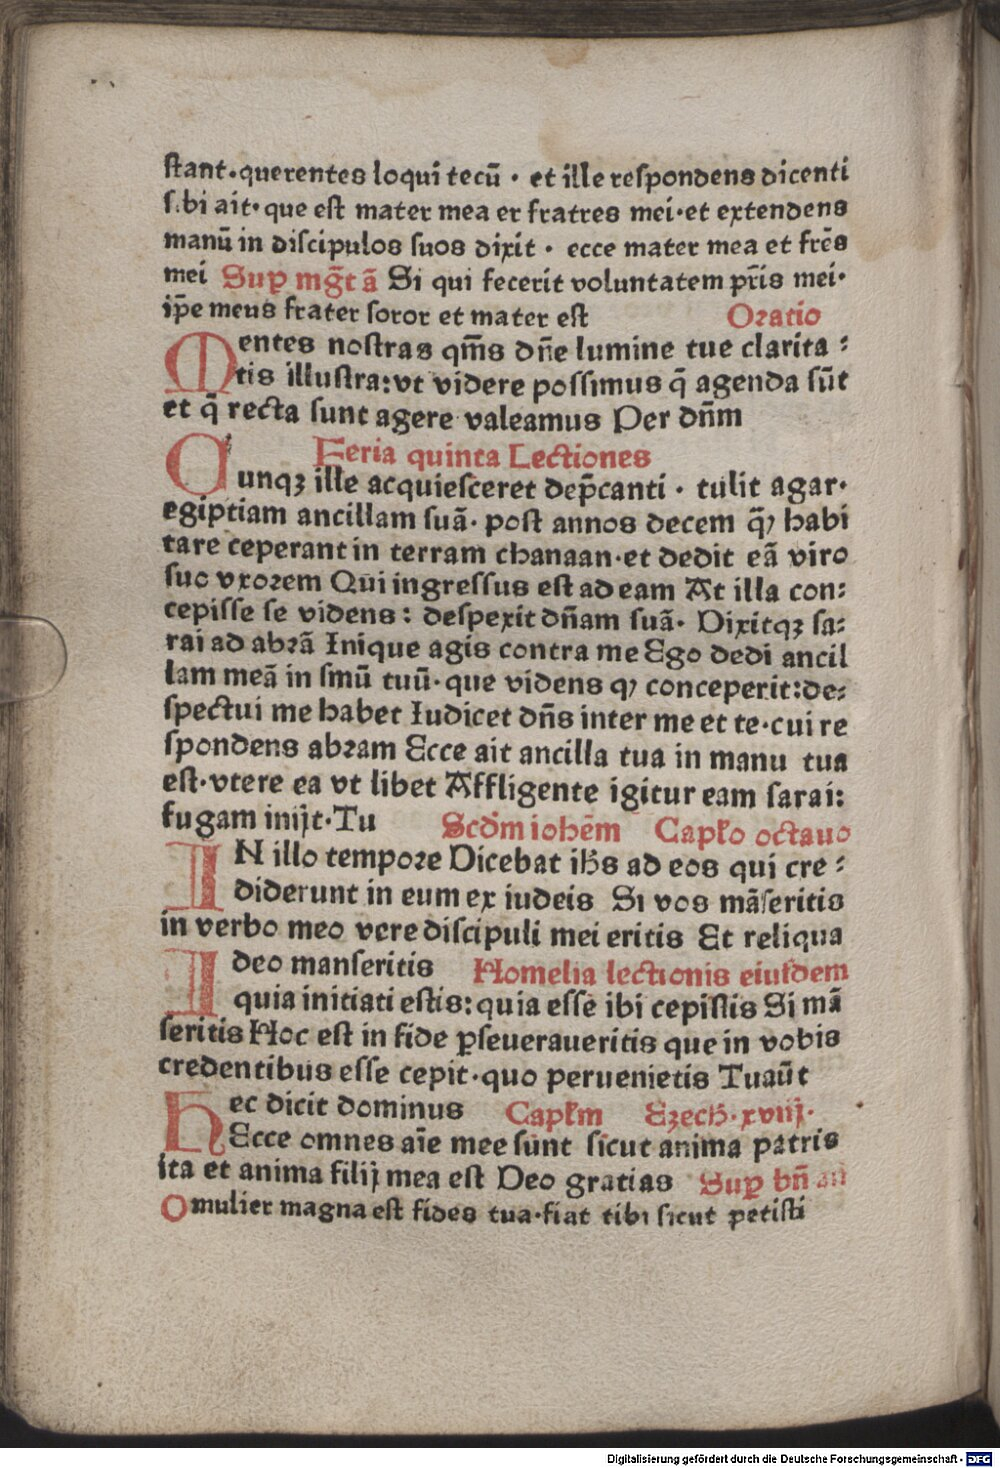 stant·querentes loqui tecū · et ille respondens dicenti
sibi ait·que est mater mea er fratres mei·et extendens
manū in discipulos suos dixit · ecce mater mea et frēs
mei Suꝑ mg̅t ā Si qui fecerit voluntatem pr̄is mei·
ip̄e meus frater soror et mater est Oratio
Mentes nostras qm̄s dn̄e lumine tue clarita⸗
tis illustra:vt videre possimus q̄ agenda sūt
et q̄ recta sunt agere valeamus Per dn̄m
Feria quinta Lectiones
Cunqꝫ ille acquiesceret dep̄canti · tulit agar·
egiptiam ancillam suā· post annos decem q̄ꝫ habi
tare ceperant in terram chanaan·et dedit eā viro
suo vxorem Qui ingressus est ad eam At illa con⸗
cepisse se videns: despexit dn̄am suā· Dixitqꝫ sa⸗
rai ad abrā Inique agis contra me Ego dedi ancil
lam meā in sinū tuū·que videns qꝫ conceperit:de⸗
spectui me habet Iudicet dn̄s inter me et te·cui re
spondens abram Ecce ait ancilla tua in manu tua
est·vtere ea vt libet Affligente igitur eam sarai:
fugam inijt·Tu Scd̄m ioh̄em Cap̄lo octauo
IN illo tempore Dicebat ih̄s ad eos qui cre⸗
diderunt in eum ex iudeis Si vos māseritis
in verbo meo vere discipuli mei eritis Et reliqua
Ideo manseritis Homelia lectionis eiusdem
quia initiati estis:quia esse ibi cepistis Si mā
seritis Hoc est in fide ꝑseueraueritis que in vobis
credentibus esse cepit·quo peruenietis Tuaūt
Hec dicit dominus Cap̄lm Ezech·xviij·
Ecce omnes aīe mee sunt sicut anima patris
ita et anima filij mea est Deo gratias Suꝑ bn̄ an
O mulier magna est fides tua·fiat tibi sicut petisti
Digitalisierung gefördert durch die Deutsche Forschungsgemeinschaft · DFG